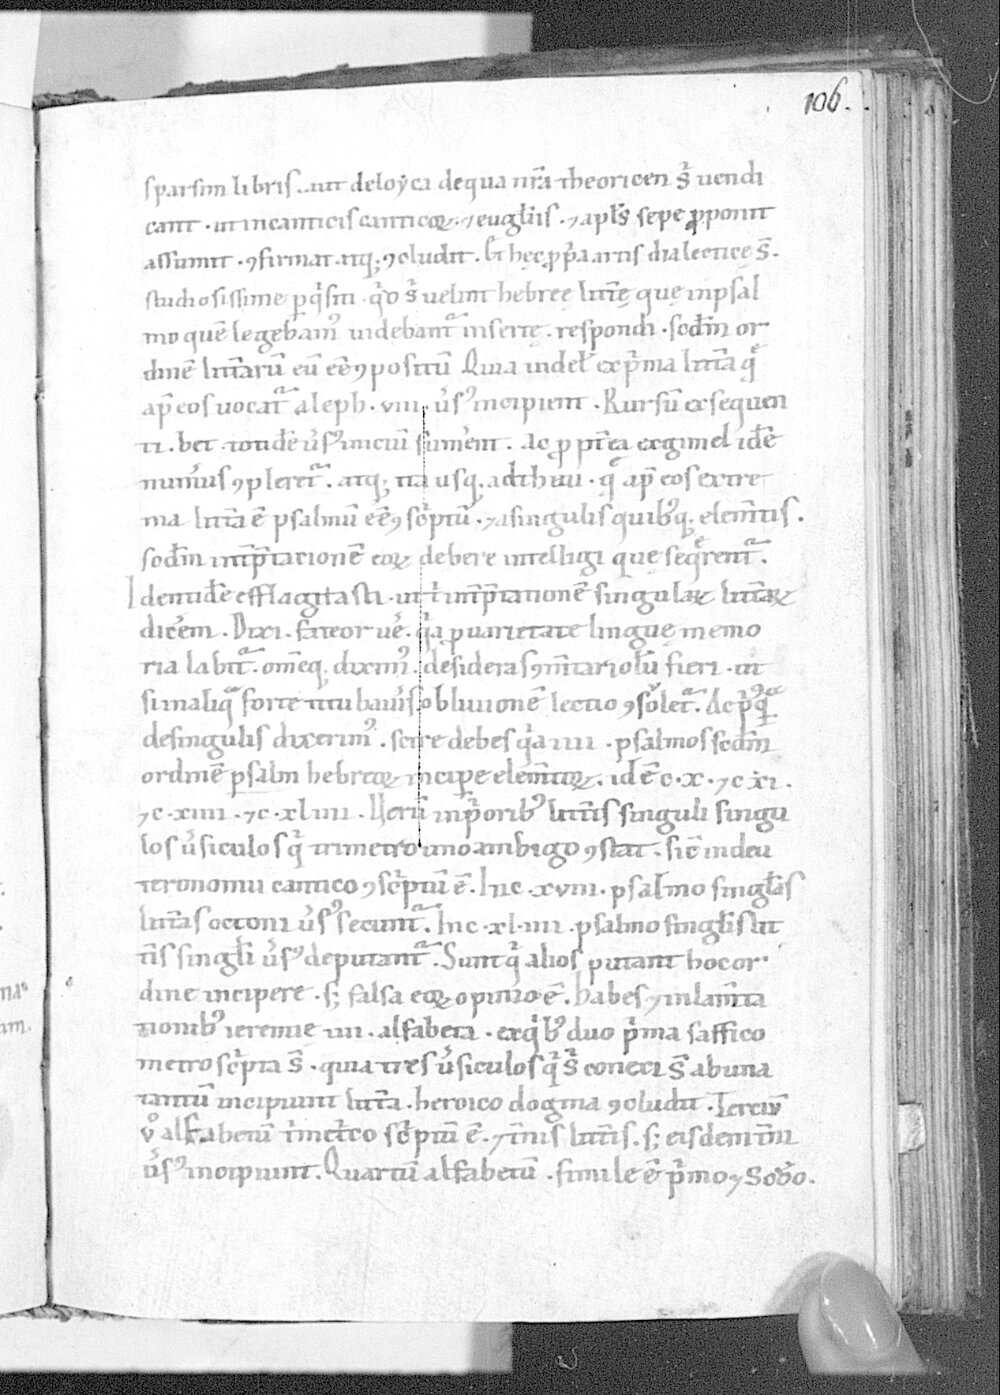 106.
sparsim libris. aut deloyca dequa nr̄a theoricen s̄ uendi
cant · ut incanticis canticoꝝ. ⁊ euḡliis · ⁊ apl̄s sepe ꝓponit
assumit · ꝯfirmat atq; ꝯcludit. Et hęc ꝓpͥa artis dialectice s̄.
studiosissime ꝑqͥsiti · qͥd s̄ uelint hebreę litt̄ę quę inpsal
mo quē legebamꝰ uidebant᷑ insertę. respondi · scd̄m or
dinē litt̄arū eū eē ꝯpositū Quia uidel̄ ex pͥma litt̄a q̄
ap̄ eos uocat᷑ aleph. viii. ūsꝰ incipiunt. Rursū ex sequen
ti. bet. totidē ūsꝰ iniciū sument. Ac ꝓpt̄ea ex gimel idē
numūs ꝯpleret᷑. atq; ita usq; ad thau · q̄ ap̄ eos extre
ma litt̄a ē psalmū eē ꝯscͥptū. ⁊ asingulis quibꝰq; elem̄tis.
scd̄m int̄p̄tationē eoꝝ debere intelligi quę seq̄rent᷑.
Identidē efflagitasti · ut t̄ int̄p̄tationē singulaꝝ litt̄aꝝ
dicēm. Dixi. fateor uē. qͥa ꝓ uarietate linguę memo
ria labit᷑. om̄eq; diximꝰ. desideras ꝯm̄tariolū fieri · ut
si inaliqͣ forte titubauūs obliuionē lectio ꝯsōlet᷑. Ac pͥꝰqͣ
desingulis dixerimꝰ. scire debes qͥa iiii · psalmos scd̄m
ordinē psalm̄ hebreoꝝ incipe elem̄toꝝ. id ē c · x · ⁊ c xi.
⁊ c · xiiii · ⁊ c · xliiii. Uerū inpͥoribꝰ litt̄is singuli singu
los ūsiculos qͥ trimetro uno ambigo ꝯstat. sic̄ indeu
teronomii cantico ꝯscͥptū ē. Inc · xviii · psalmo singl̄as
litt̄as octoni ūsꝰ secunt᷑. Inc · xl · iiii · psalmo singl̄is lit
t̄is singl̄i ūsꝰ deputant᷑. Sunt qͥ alios putant hoc or
dine incipere · s; falsa eoꝝ opinio ē. Habes ⁊ inlam̄ta
tionibꝰ ieremie iiii · alfabeta · ex qͥbꝰ duo pͥma saffico
metro scͥpta s̄ · quia tres ūsiculos qͥ s̄ conexi s̄ abuna
tantū incipiunt litt̄a · heroico dogma ꝯcludit. Terciū
v̊ alfabetū tͥmetro scͥptū ē. ⁊ t̄nis litt̄is. s; eisdem t̄ni
ūsꝰ incipiunt. Quartū alfabetū · simile ē pͥmo ⁊ Scd̄o.